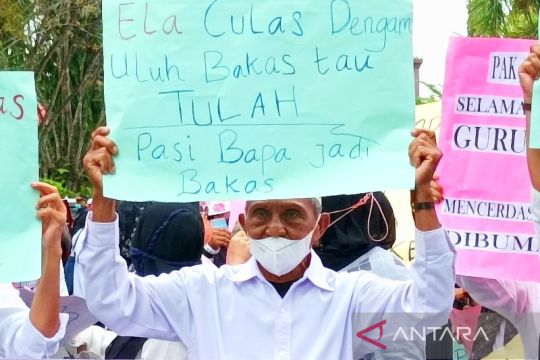 Ela Culas Dengam
uluh Bakas tau
TULAH
Pasi Bapa jadi
Bakas
PAK
SELAMA
GURU
MENCERDAS
DIBUMI
as
ANTARA